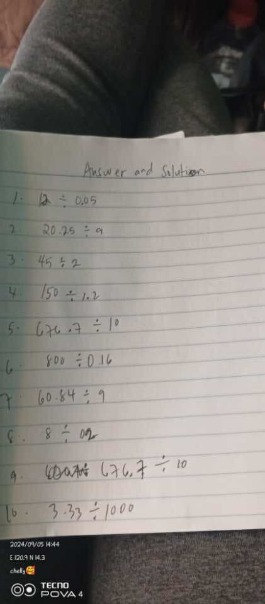 Answer and Solution
1. 12 ÷ 0.05
2. 20.25 ÷ 9
3. 45 ÷ 2
4. 150 ÷ 1.2
5. 676.7 ÷ 10
6. 800 ÷ 0.16
7 60.84 ÷ 9
8. 8 ÷
9. 676.7 ÷ 10
10. 3.33 ÷ 1000
2024/09/05 14:44
E 120.9 N 14.3
chelly🥰
TECNO
POVA 4